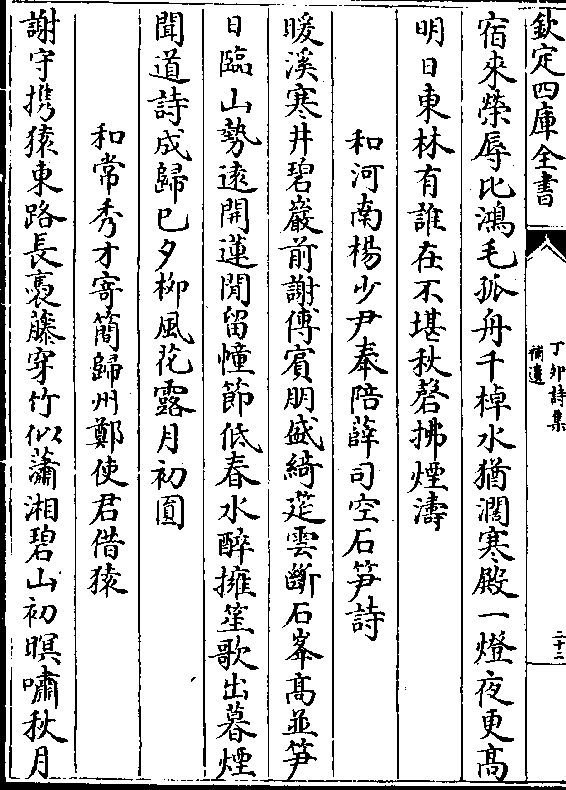 欽定四庫全書
丁卯詩集
補遺
二十二
宿來榮辱比鴻毛孤舟千棹水猶濶寒殿一燈夜更高
明日東林有誰在不堪秋磬拂煙濤
和河南楊少尹奉陪薛司空石笋詩
暖溪寒井碧巖前謝傅賓朋盛綺筵雲斷石峯高並笋
日臨山勢逺開蓮閒留幢節低春水醉擁笙歌出暮煙
聞道詩成歸已夕柳風花露月初圓
和常秀才寄簡歸州鄭使君借猿
謝守攜猿東路長裊藤穿竹似瀟湘碧山初暝嘯秋月